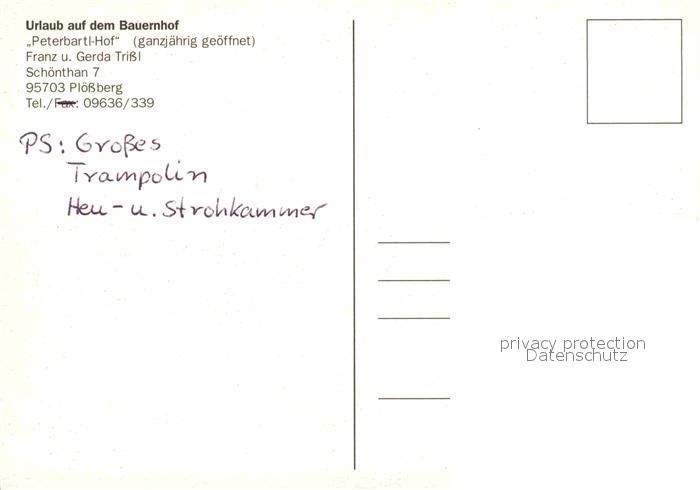 Urlaub auf dem Bauernhof
„Peterbartl-Hof“ (ganzjährig geöffnet)
Franz u. Gerda Trißl
Schönthan 7
95703 Plößberg
Tel./Fax: 09636/339
PS: Großes
Trampolin
Heu- u. Strohkammer
privacy protection
Datenschutz